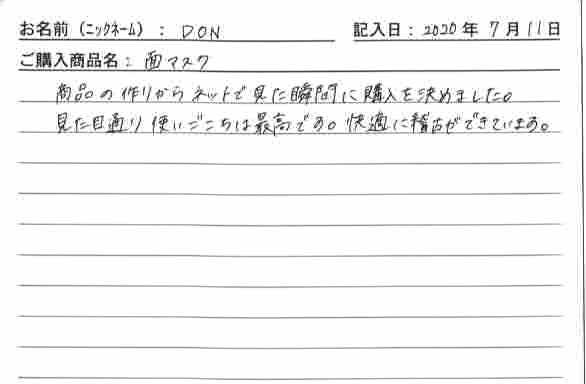 お名前（ニックネーム）：DON 記入日：2020年7月11日
ご購入商品名：面マスク
商品の作りからネットで見た瞬間に購入を決めました。
見た目通り使いごこちは最高です。快適に稽古ができています。